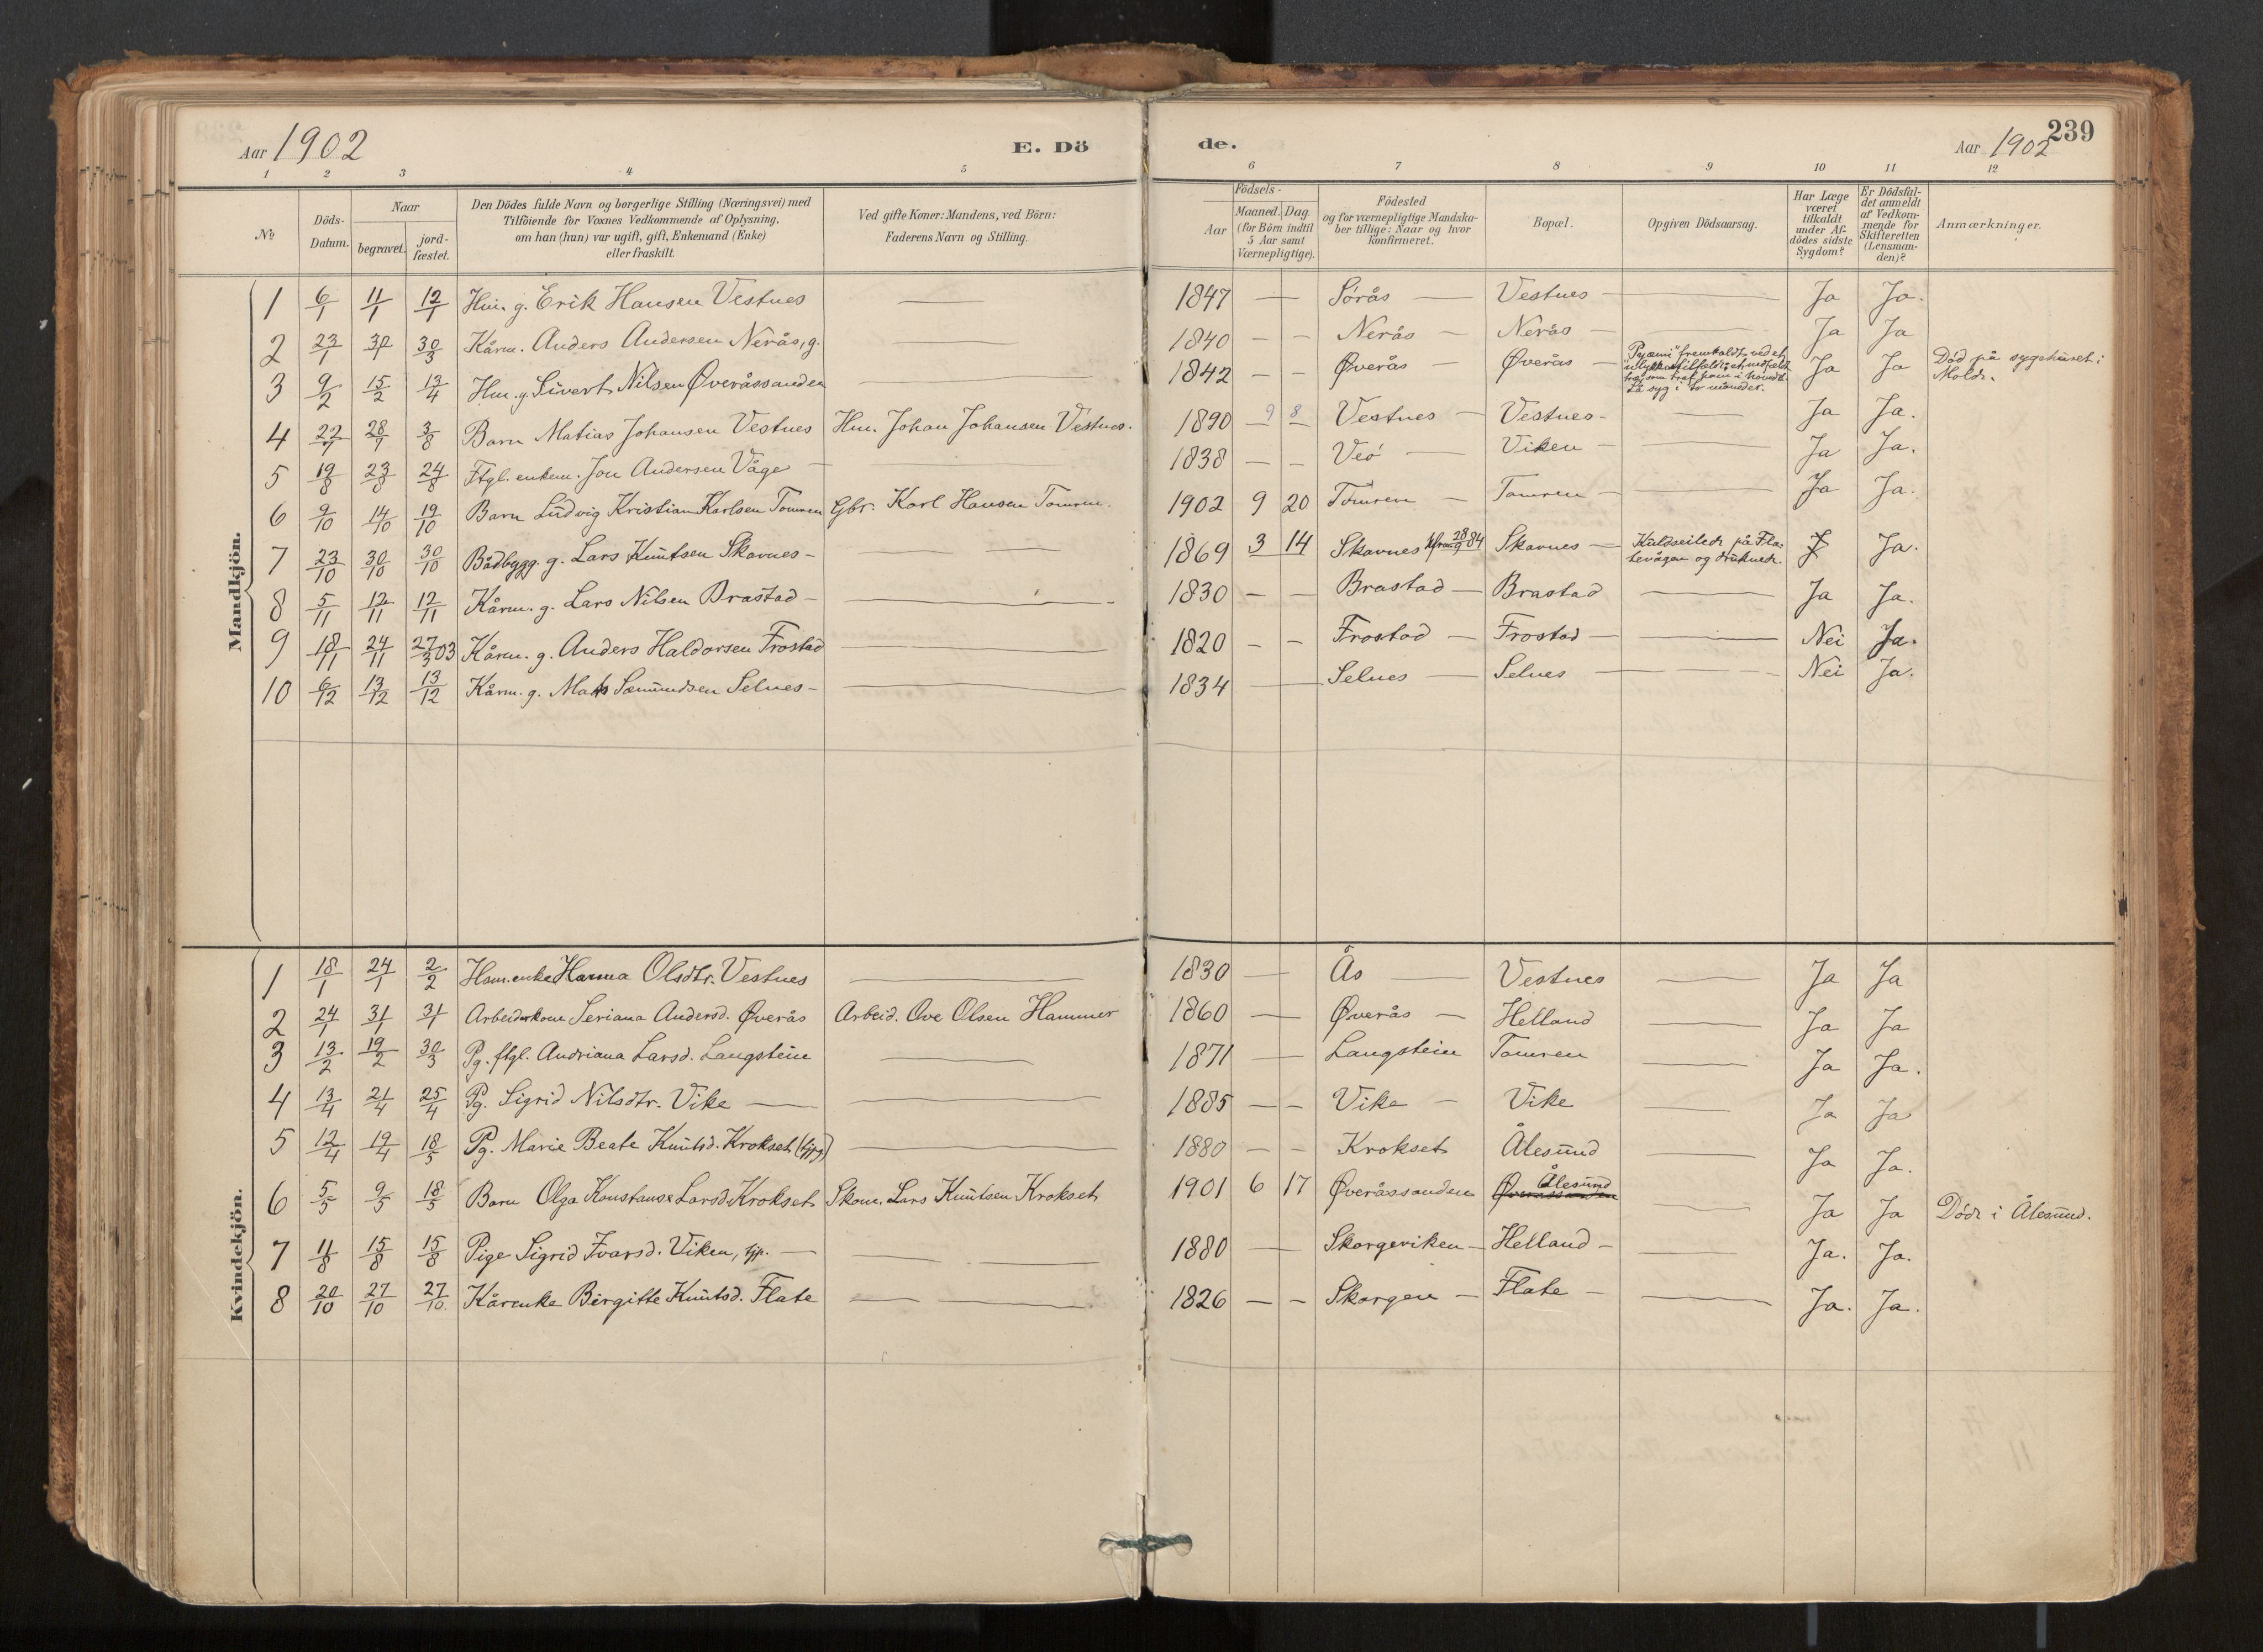 Aar 1902
E. Dö
de.
Aar 1902
239
1 2 3 4 5 6 7 8 9 10 11 12
No
Döds-
Datum.
Naar
begravet.
jord-
fæstet.
Den Dödes fulde Navn og borgerlige Stilling (Næringsvei) med
Tilföiende for Voxnes Vedkommende af Oplysning,
om han (hun) var ugift, gift, Enkemand (Enke)
eller fraskilt.
Ved gifte Koner: Mandens, ved Börn:
Faderens Navn og Stilling.
Födsels-
Aar
Maaned. Dag
(for Börn indtil
5 Aar samt
Værnepligtige).
Födested
og for værnepligtige Mandska-
ber tillige: Naar og hvor
konfirmeret.
Bopæl.
Opgiven Dödsaarsag.
Har Læge
været
tilkaldt
under Af-
dödes sidste
Sygdom?
Er Dödsfal-
det anmeldt
af Vedkom-
mende for
Skifteretten
(Lensman-
den)?
Anmærkninger.
Mandkjön.
1 6/1 11/1 12/1 Hm. g. Erik Hansen Vestnes — 1847 — Sörås — Vestnes — Ja Ja.
2 23/1 30/1 30/3 Kårm. Anders Andersen Nerås, g. — 1840 — — Nerås — Nerås — Ja Ja
3 9/2 15/2 13/4 Hm. g. Sivert Nilsen Øveråssanden — 1842 — — Øverås — Øverås — "Pyæmi" fremkaldt ved et
ulykkestilfælde; et nedfældt
træ, som traf ham i hovedet.
Lå syg i to måneder. Ja Ja Död på sygehuset i
Molde.
4 22/7 28/7 3/8 Barn Matias Johansen Vestnes Hm. Johan Johansen Vestnes. 1890 9 8 Vestnes — Vestnes- — Ja Ja.
5 19/8 23/8 24/8 Ftgl. enkem. Jon Andersen Våge — 1838 — — Veö — Viken — Ja Ja.
6 9/10 14/10 19/10 Barn Ludvig Kristian Karlsen Tomren Gbr. Karl Hansen Tomren. 1902 9 20 Tomren — Tomren — Ja Ja.
7 23/10 30/10 30/10 Bådbygg. g. Lars Knutsen Skavnes — 1869 3 14 Skavnes kfrm 28/9 84 Skavnes — Kuldseilede på Fla-
tevågen og druknede. Ja.
8 5/11 12/11 12/11 Kårm. g. Lars Nilsen Brastad — 1830 — — Brastad — Brastad — Ja Ja.
9 18/11 24/11 27/3 03 Kårm. g. Anders Haldorsen Frostad — 1820 — — Frostad — Frostad — Nei Ja.
10 6/12 13/12 13/12 Kårm. g. Mats Sæmundsen Selnes — 1834 — Selnes — Selnes — Nei Ja.
Kvindekjön.
1 18/1 24/1 2/2 Hsm.enke Hanna Olsdtr. Vestnes — 1830 — Ås — Vestnes — Ja Ja
2 24/1 31/1 31/1 Arbeiderkone Seriana Andersd. Øverås Arbeid. Ove Olsen Hammer 1860 — Øverås — Helland — Ja Ja
3 13/2 19/2 30/3 Pg. ftgl. Andriana Larsd. Langstein — 1871 — Langstein Tomren — Ja Ja.
4 13/4 21/4 25/4 Pg. Sigrid Nilsdtr. Vike — 1885 — — Vike — Vike — Ja Ja
5 12/4 19/4 18/5 Pg. Marie Beate Knutsd. Krokset (tjpg) — 1880 — — Krokset Ålesund — Ja Ja.
6 5/5 9/5 18/5 Barn Olga Konstanse Larsd. Krokset Skom. Lars Knutsen Krokset 1901 6 17 Øveråssanden Øveråssanden Ålesund — Ja Ja Döde i Ålesund.
7 11/8 15/8 15/8 Pige Sigrid Ivarsd. Viken, tjp. — 1880 — Skorgeviken — Helland — Ja. Ja.
8 20/10 27/10 27/10 Kårenke Birgitte Knutsd. Flate — 1826 — — Skorgen — Flate — Ja. Ja.